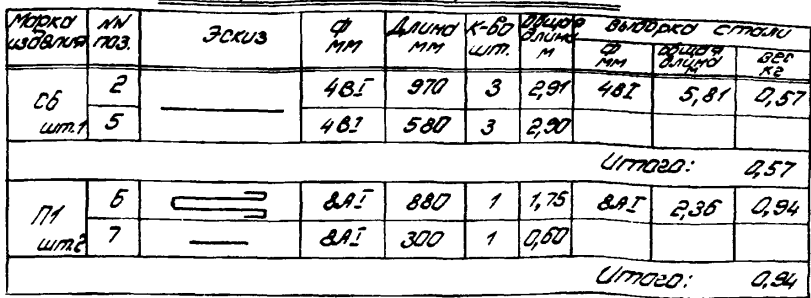 Марка изделия NN поз. Эскиз Ф мм Длина мм К-во шт. Общая длина м Выборка стали
Ф мм общая длина м вес кг
С6 шт.1 2 4ВI 970 3 2,91 4ВI 5,81 0,57
5 4ВI 580 3 2,90
Итого: 0,57
П1 шт.2 6 8АI 880 1 1,75 8АI 2,36 0,94
7 8АI 300 1 0,60
Итого: 0,94